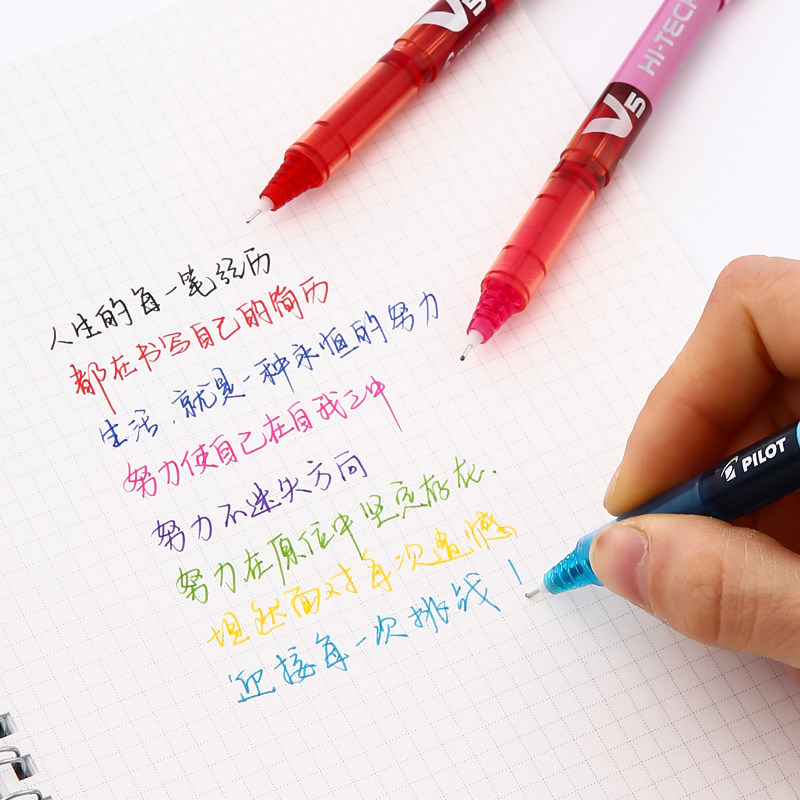 V5
V5
HI-TEC
人生的每一笔经历
都在书写自己的简历
生活,就是一种永恒的努力
努力使自己在自我之中
努力不迷失方向
努力在原位中坚定存在.
坦然面对每次遗憾
迎接每一次挑战!
PILOT